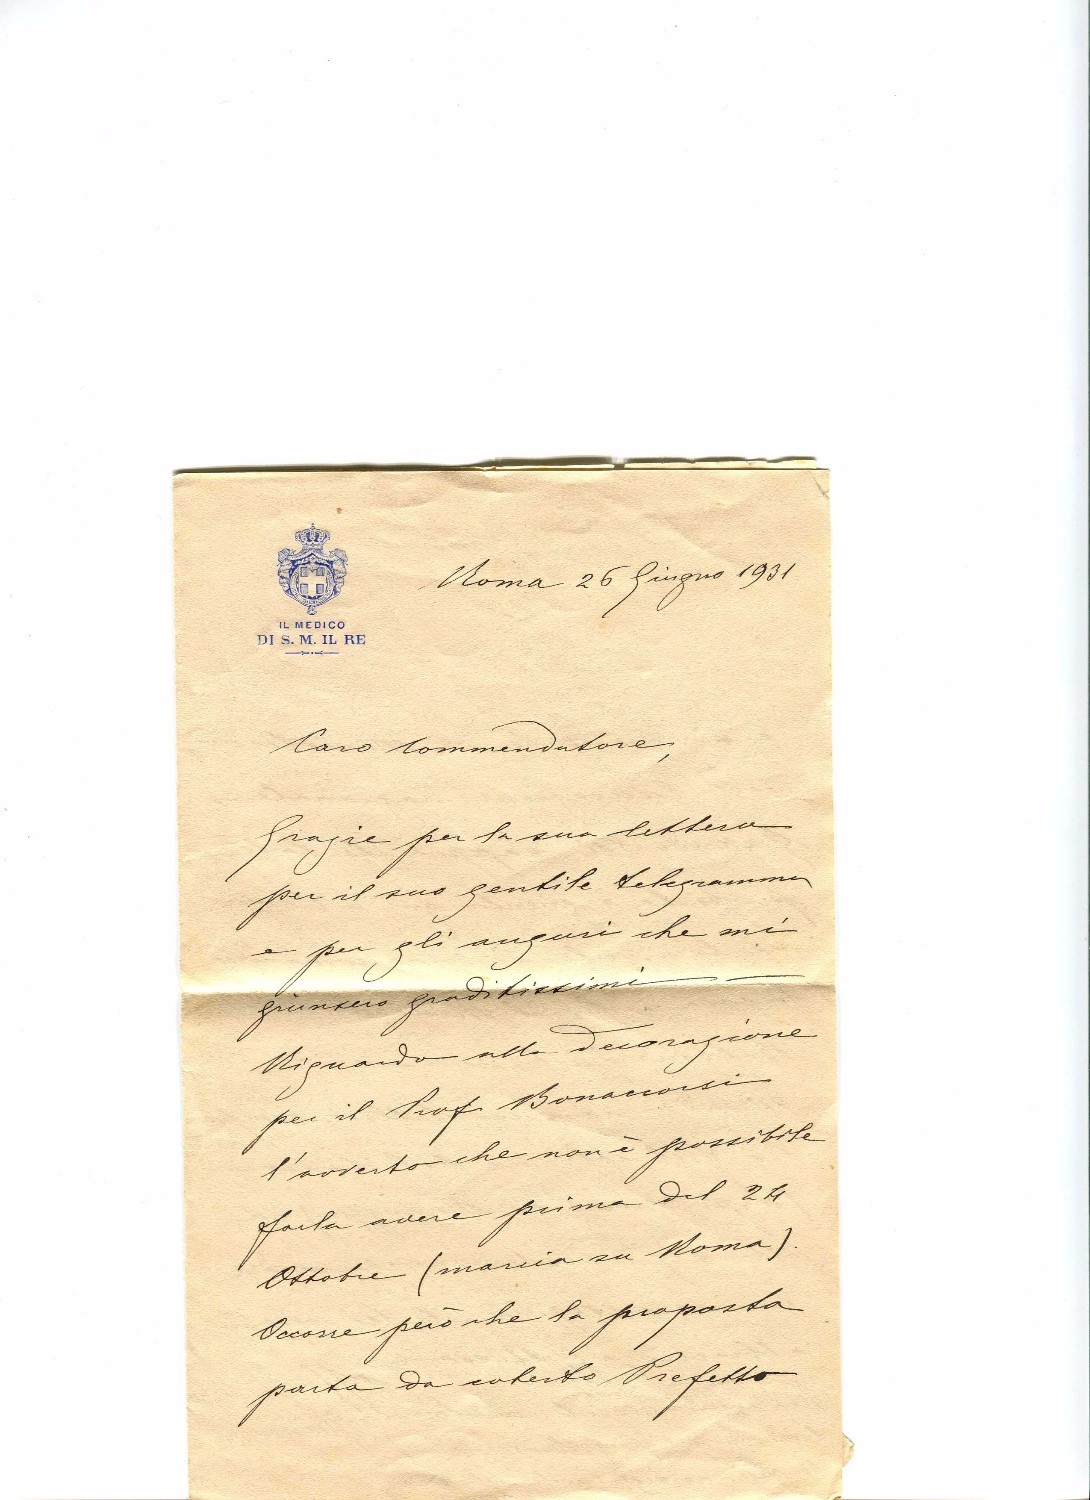 IL MEDICO
DI S. M. IL RE
Roma 26 Giugno 1931
Caro Commendatore,
Grazie per la sua lettera
per il suo gentile telegramma
e per gli auguri che mi
giunsero graditissimi —
Riguardo alla decorazione
per il Prof Bonaccorsi
l'avverto che non è possibile
farla avere prima del 24
Ottobre (marcia su Roma).
Occorre però che la proposta
parta da codesto Prefetto